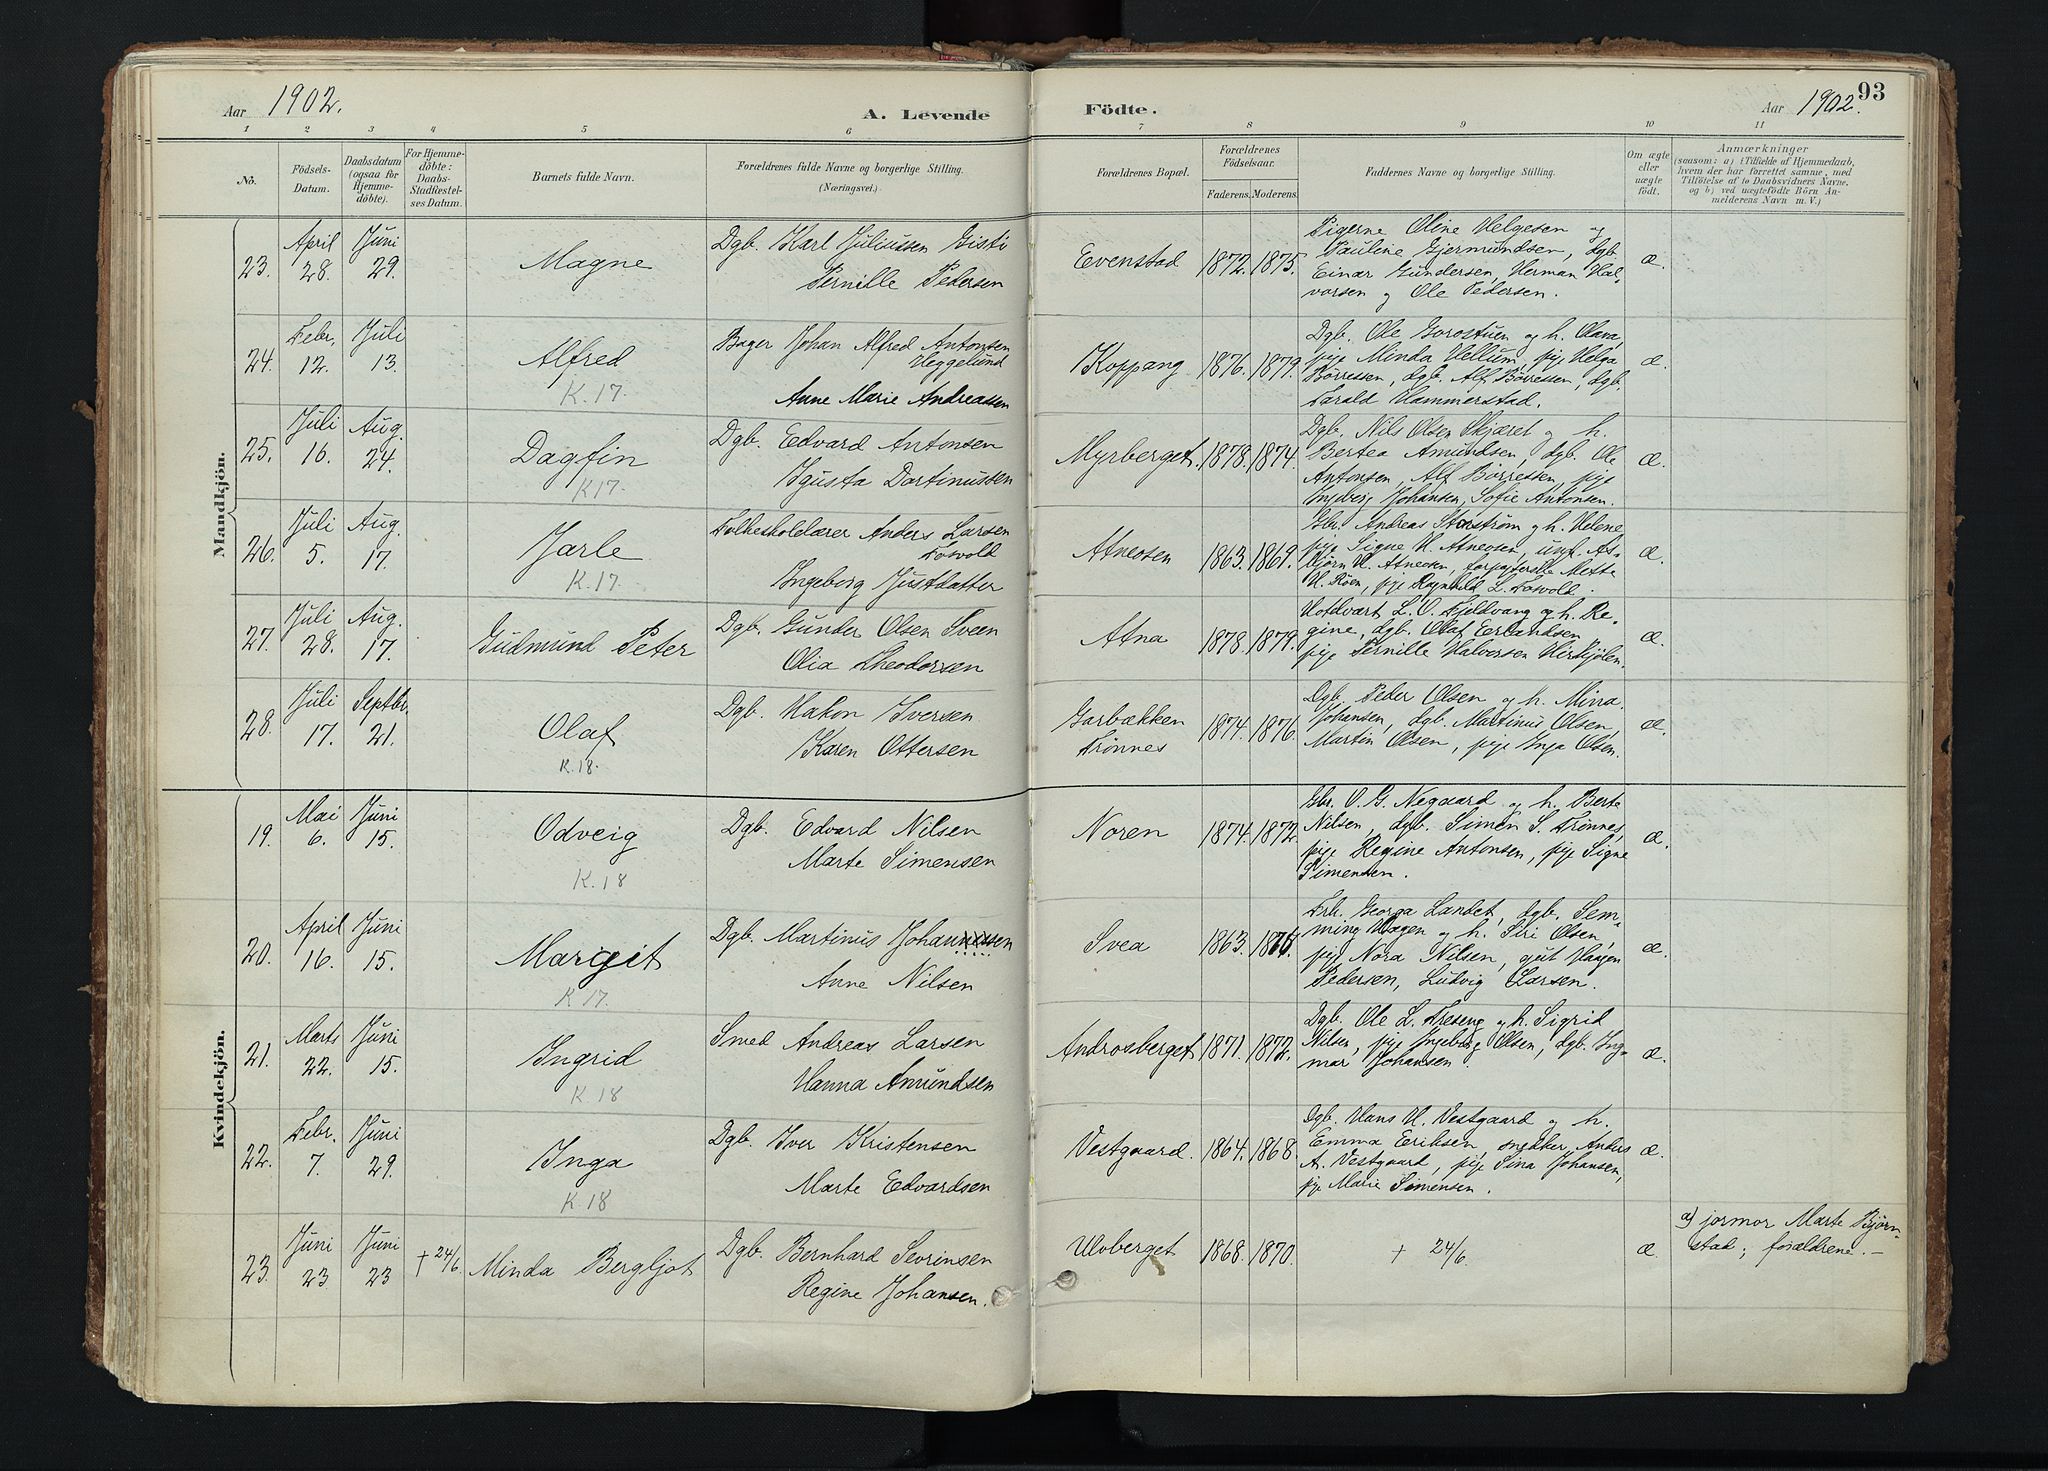 Aar 1902.
A. Levende
Födte.
Aar 1902.
93
1 2 3 4 5 6 7 8 9 10 11
No.
Födsels-Datum.
Daabsdatum (ogsaa for Hjemme-döbte).
For Hjemme-döbte: Daabs-Stadfæstel-ses Datum.
Barnets fulde Navn.
Forældrenes fulde Navne og borgerlige Stilling.
(Næringsvei.)
Forældrenes Bopæl.
Forældrenes Födselsaar.
Faderens. Moderens.
Faddernes Navne og borgerlige Stilling.
Om ægte eller uægte födt.
Anmærkninger
(saasom: a) i Tilfælde af Hjemmedaab,
hvem der har forrettet samme, med
Tilföielse af to Daabsvidners Navne,
og b) ved uegtefödte Börn An-
melderens Navn m. V.)
Mandkjön.
23. April 28. Juni 29. Magne
Dgb. Karl Juliussen Gisti
Pernille Pedersen
Evenstad 1872. 1875.
Pigerne Oline Helgesen og
Pauline Gjermundsen, dgb.
Einar Gundersen, Herman Hal-
vorsen og Ole Pedersen.
æ.
24. Febr. 12. Juli 13. Alfred
K. 17.
Bager Johan Alfred Antonsen
Heggelund
Anne Marie Andreassen
Koppang 1876. 1879.
Dgb. Ole Gorostuen og h. Olava,
pige Minda Hellum, pige Helga
Børressen, dgb. Alf Børressen, dgb.
Harald Hammerstad.
æ.
25. Juli 16. Aug. 24. Dagfin
K 17.
Dgb. Edvard Antonsen
Igusta Dortinussen
Myrberget. 1878. 1874.
Dgb. Nils Olsen Skjæret og h.
Bertea Amundsen, dgb. Ole
Antonsen, Alf Børresen, pige
Ingeborg Johansen, Sofie Antonsen.
æ.
26. Juli 5. Aug. 17. Jarle
K. 17
Folkeskolelærer Anders Larsen
Fosvold
Ingeborg Justdatter
Atneosen 1863. 1869.
Gbr. Andreas Storstrøm og h. Helene
pige Signe H. Atneosen, ungk. As-
bjørn H. Atneosen, Mette
H. Røen, pige Ragnhild L. Fosvold.
æ.
27. Juli 28. Aug. 17. Gudmund Peter
Dgb. Gunder Olsen Sveen
Olia Theodorsen
Atna 1878. 1879.
L. O. Fjeldvang og h. Re-
gine, dgb. Olaf Erlandsen
pige Pernille Halvorsen Hirkjølen.
æ.
28. Juli 17. Septbr. 21. Olaf
K. 18.
Dgb. Hakon Iversen
Karen Ottersen
Garbækken
Trønnes
1874. 1876.
Dgb. Peder Olsen og h. Mina
Johansen, dgb. Martinus Olsen,
Martin Olsen, pige Inga Olsen.
æ.
Kvindekjön.
19. Mai 6. Juni 15. Odveig
K. 18
Dgb. Edvard Nilsen
Marte Simensen
Noren 1874. 1872.
Gbr. O. G. Negaard og h. Berte
Nilsen, dgb. Simen S. Trønnes,
pige Regine Antonsen, pige Signe
Simensen.
æ.
20. April 16. Juni 15. Margit
K 17
Dgb. Martinus Johannessen
Anne Nilsen
Svea 1863.
Georga Landet, dgb. Sem-
ming Hagen og h. Siri Olsen,
pige Nora Nilsen, gut Haagen
Pedersen, Ludvig Larsen.
æ.
21. Marts 22. Juni 15. Ingrid
K. 18
Smed Andreas Larsen
Hanna Amundsen
Androsberget 1871. 1872.
Dgb. Ole L. Treseng og h. Sigrid
Nilsen, pige Ingeborg Olsen, dgb. Ing-
mar Johansen.
æ.
22. Febr. 7. Juni 29. Inga
K. 18
Dgb. Iver Kristensen
Marte Edvardsen
Vestgaard. 1864. 1868.
Dgb. Hans H. Vestgaard og h.
Emma Eriksen, snekker Anders
A. Vestgaard, pige Sina Johansen,
pige Marie Simensen.
æ.
23. Juni 23. Juni 23 † 24/6. Minda Bergljot
Dgb. Bernhard Sevrinsen
Regine Johansen.
Ulvberget 1868. 1870.
† 24/6.
æ.
a) jormor Marte Bjørn-
stad; forældrene. –